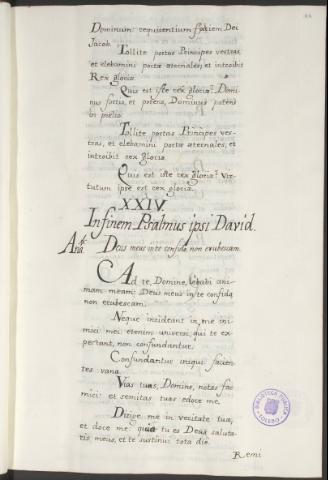 Dominum: requirentium faciem Dei
Jacob.
Tollite portas Principes vestras,
et elebamini portæ æternales, et introibit
Rex gloriæ.
Quis est iste rex gloriæ? Domi-
nus fortis, et potens, Dominus potens
in prælio.
Tollite portas Principes ves-
tras, et elebamini portæ æternales, et
introibit rex gloriæ.
Quis est iste rex gloriæ? Vir-
tutum ipse est rex gloriæ.
XXIV.
In finem Psalmus ipsi David.
Deus meus in te confido non erubescam.
Ad te, Domine, lebabi ani-
mam meam: Deus meus in te confido
non erubescam:
Neque irrideant me ini-
mici mei: etenim universi, qui te ex-
pectant, non confundantur.
Confundantur iniqui facien-
tes vana.
Vias tuas, Domine, notas fac
mici: et semitas tuas edoce me.
Dirige me in veritate tua,
et doce me: quia tu es Deus saluta-
ris meus, et te sustinui tota die.
Remi